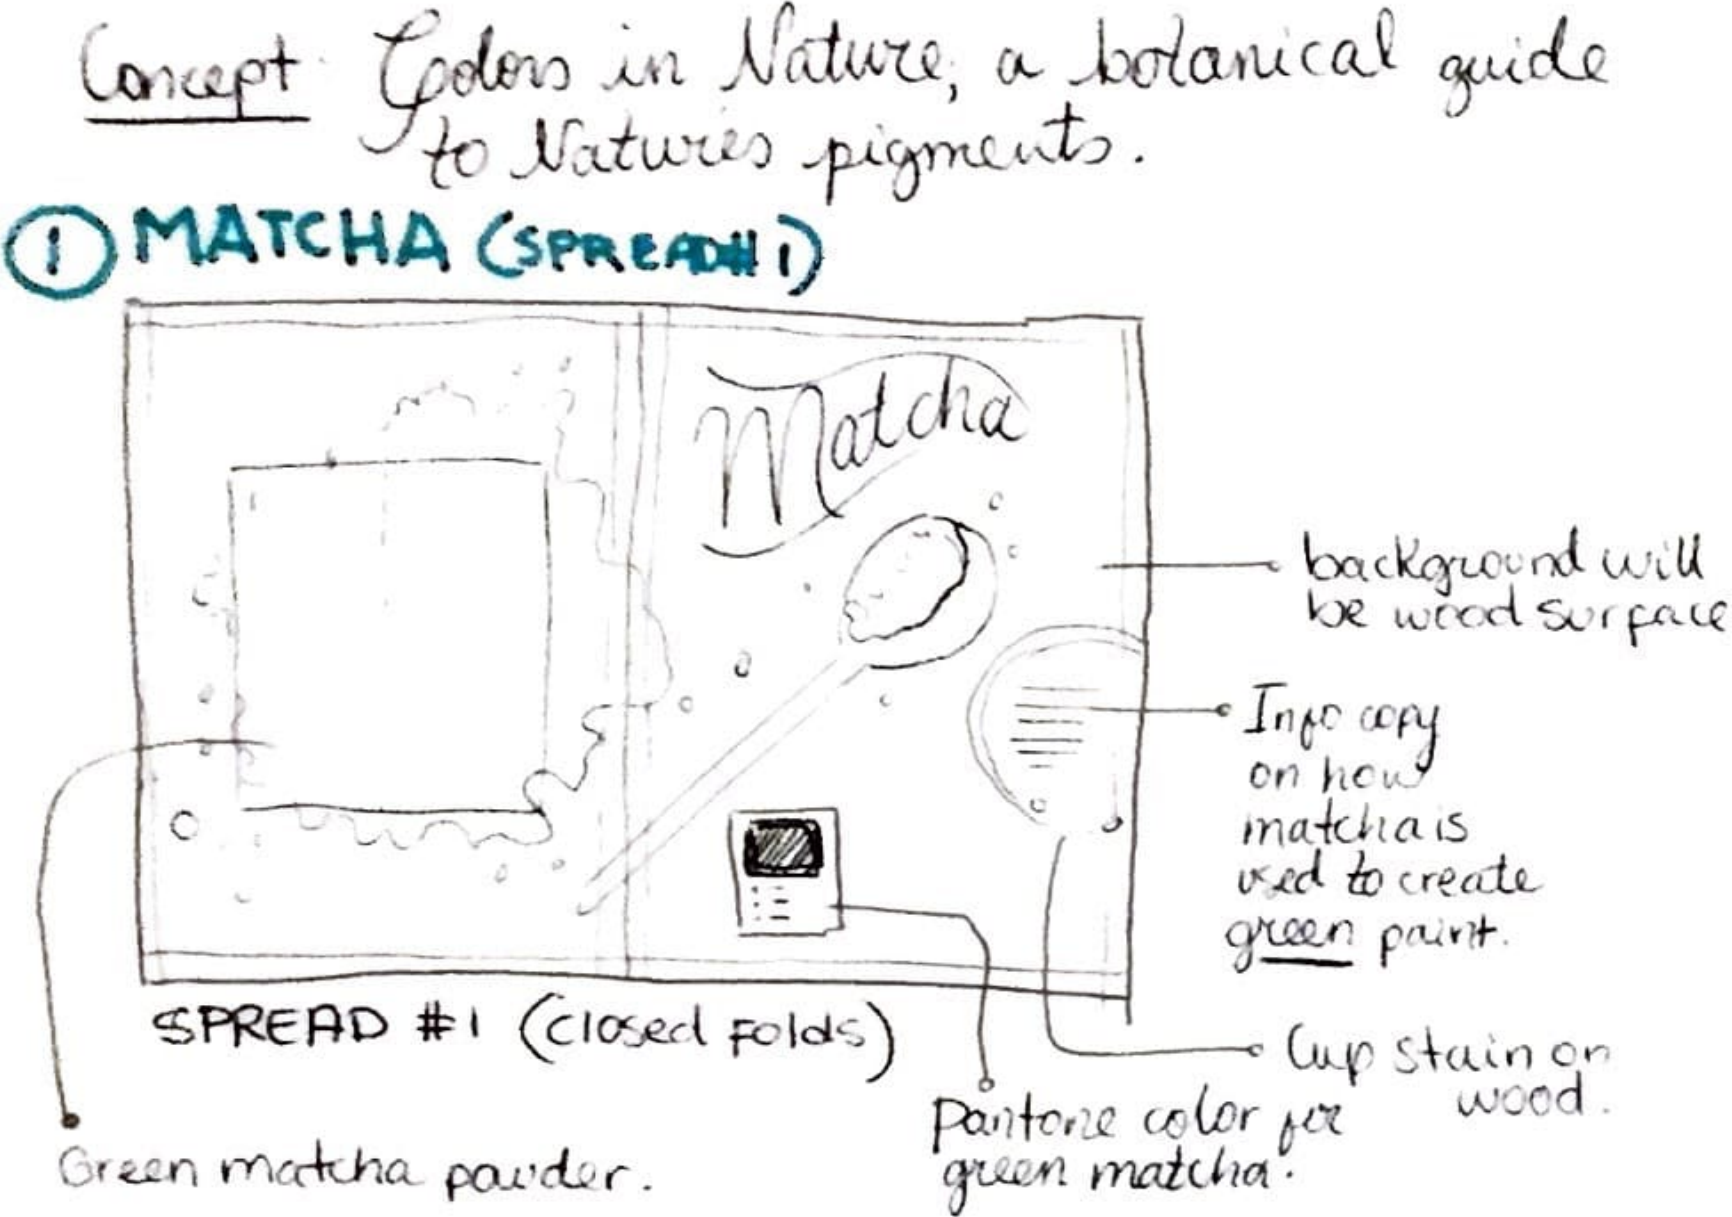 Concept: Colors in Nature, a botanical guide
to Natures pigments.
1 MATCHA (SPREAD#1)
Matcha
background will
be wood surface
Info copy
on how
matcha is
used to create
green paint.
SPREAD #1 (closed folds)
Cup stain on
wood.
Pantone color for
green matcha.
Green matcha powder.